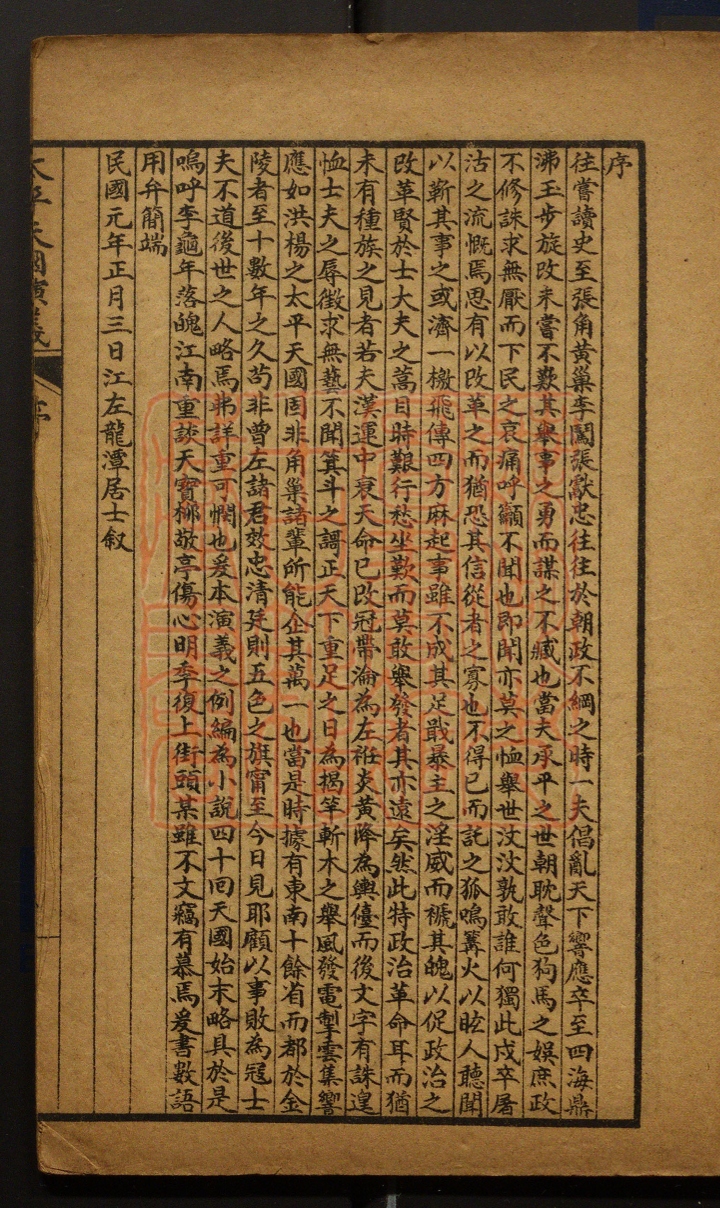 序
往嘗讀史至張角黃巢李闖張獻忠往往於朝政不綱之時一夫倡亂天下響應卒至四海鼎
沸玉步旋改未嘗不歎其舉事之勇而謀之不臧也當夫承平之世朝耽聲色狗馬之娛庶政
不修誅求無厭而下民之哀痛呼籲不聞也即聞亦莫之恤舉世汶汶孰敢誰何獨此戍卒屠
沽之流慨焉思有以改革之而猶恐其信從者之寡也不得已而託之狐鳴篝火以眩人聽聞
以蘄其事之或濟一檄飛傳四方麻起事雖不成其足戢暴主之淫威而褫其魄以促政治之
改革賢於士大夫之蒿目時艱行愁坐歎而莫敢舉發者其亦遠矣然此特政治革命耳而猶
未有種族之見者若夫漢運中衰天命已改冠帶淪為左袵炎黃降為輿儓而後文字有誅遑
恤士夫之辱徵求無藝不聞箕斗之謌正天下重足之日為揭竿斬木之舉風發電掣雲集響
應如洪楊之太平天國固非角巢諸輩所能企其萬一也當是時據有東南十餘省而都於金
陵者至十數年之久苟非曾左諸君效忠清廷則五色之旗甯至今日見耶顧以事敗為冦士
夫不道後世之人略焉弗詳重可憫也爰本演義之例編為小說四十回天國始末略具於是
嗚呼李龜年落魄江南重談天寶柳敬亭傷心明季復上街頭某雖不文竊有慕焉爰書數語
用弁簡端
民國元年正月三日江左龍潭居士叙
太平天國演義
序